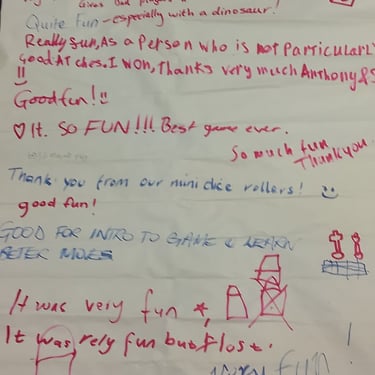 Gives Bad players a
Quite Fun - especially with a dinosaur!
Really fun, As a Person who is not Particularl
Good At ches. I won, Thanks very much Anthony & S
!!
Good fun!
♡ It. SO FUN!!! Best game ever.
So much fun
Thank you
Thank you from our mini dice rollers!
good fun!
GOOD FOR INTRO TO GAME & LEARN
BETER MOVES
It was very fun
It was rely fun but I lost.
very fun !